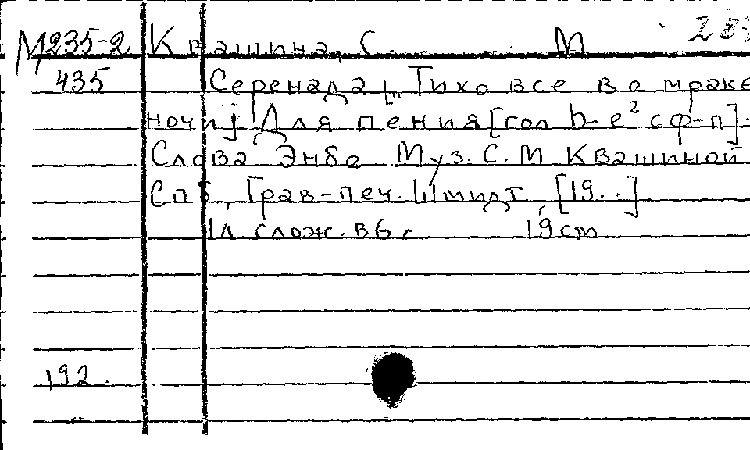 М235-2. Квашина, С. М
435 Серенада [„Тихо все во мраке
ночи] Для пения [гол h-e² с ф-п].
Слова Энбе Муз. С. М Квашиной
Спб, Грав-печ. Шмидт, [19..]
1л слож. в 6 с 19 cm
192.